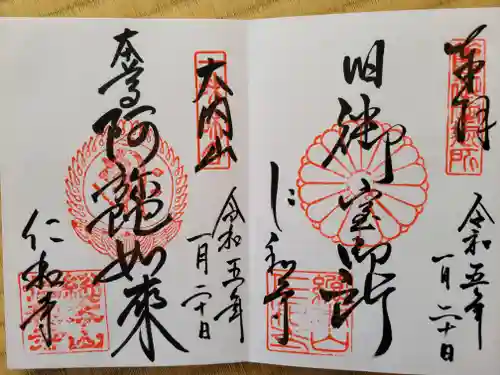 奉拝
令和五年
一月二十日
旧御室御所
仁和寺
大内山
令和五年
一月二十日
本尊
阿弥陀如來
仁和寺